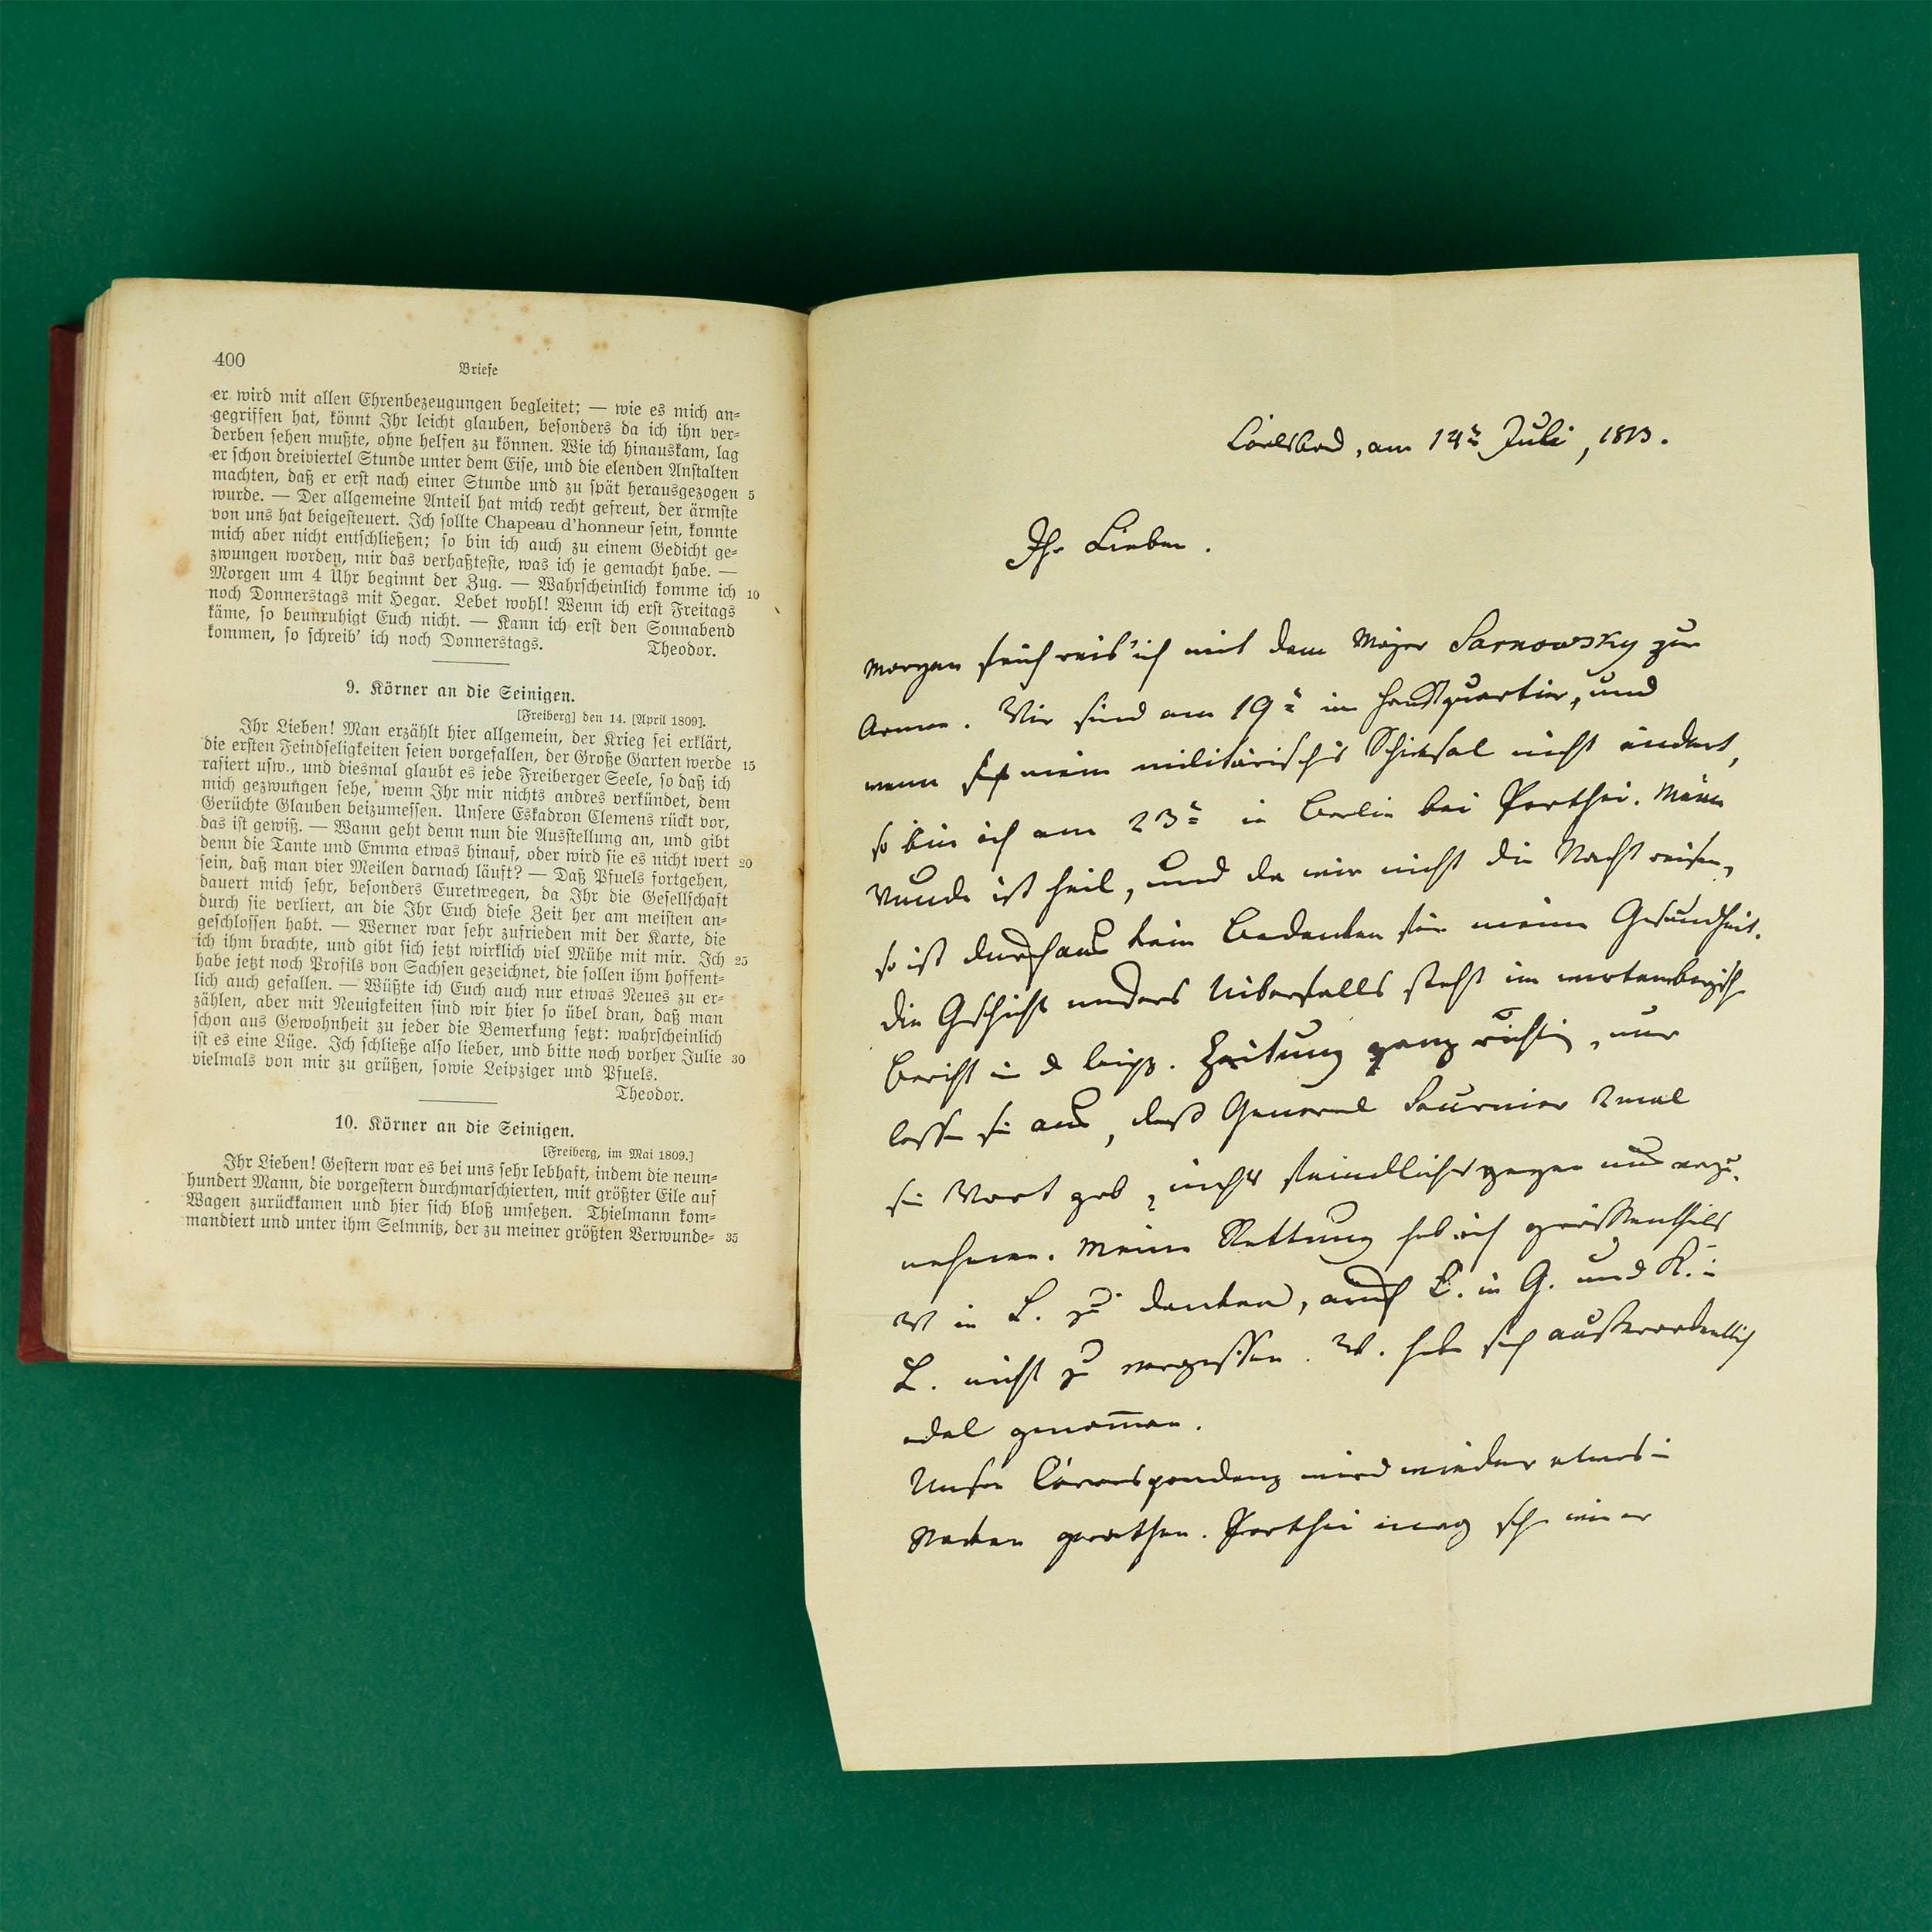 400
Briefe
er wird mit allen Ehrenbezeugungen begleitet; — wie es mich an=
gegriffen hat, könnt Ihr leicht glauben, besonders da ich ihn ver=
derben sehen mußte, ohne helfen zu können. Wie ich hinauskam, lag
er schon dreiviertel Stunde unter dem Eise, und die elenden Anstalten
machten, daß er erst nach einer Stunde und zu spät herausgezogen 5
wurde. — Der allgemeine Anteil hat mich recht gefreut, der ärmste
von uns hat beigesteuert. Ich sollte Chapeau d'honneur sein, konnte
mich aber nicht entschließen; so bin ich auch zu einem Gedicht ge=
zwungen worden, mir das verhaßteste, was ich je gemacht habe. —
Morgen um 4 Uhr beginnt der Zug. — Wahrscheinlich komme ich 10
noch Donnerstags mit Hegar. Lebet wohl! Wenn ich erst Freitags
käme, so beunruhigt Euch nicht. — Kann ich erst den Sonnabend
kommen, so schreib' ich noch Donnerstags. Theodor.
9. Körner an die Seinigen.
[Freiberg] den 14. [April 1809].
Ihr Lieben! Man erzählt hier allgemein, der Krieg sei erklärt,
die ersten Feindseligkeiten seien vorgefallen, der Große Garten werde 15
rasiert usw., und diesmal glaubt es jede Freiberger Seele, so daß ich
mich gezwungen sehe, wenn Ihr mir nichts andres verkündet, dem
Gerüchte Glauben beizumessen. Unsere Eskadron Clemens rückt vor,
das ist gewiß. — Wann geht denn nun die Ausstellung an, und gibt
denn die Tante und Emma etwas hinauf, oder wird sie es nicht wert 20
sein, daß man vier Meilen darnach läuft? — Daß Pfuels fortgehen,
dauert mich sehr, besonders Euretwegen, da Ihr die Gesellschaft
durch sie verliert, an die Ihr Euch diese Zeit her am meisten an=
geschlossen habt. — Werner war sehr zufrieden mit der Karte, die
ich ihm brachte, und gibt sich jetzt wirklich viel Mühe mit mir. Ich 25
habe jetzt noch Profils von Sachsen gezeichnet, die sollen ihm hoffent=
lich auch gefallen. — Wüßte ich Euch auch nur etwas Neues zu er=
zählen, aber mit Neuigkeiten sind wir hier so übel dran, daß man
schon aus Gewohnheit zu jeder die Bemerkung setzt: wahrscheinlich
ist es eine Lüge. Ich schließe also lieber, und bitte noch vorher Julie 30
vielmals von mir zu grüßen, sowie Leipziger und Pfuels.
Theodor.
10. Körner an die Seinigen.
[Freiberg, im Mai 1809.]
Ihr Lieben! Gestern war es bei uns sehr lebhaft, indem die neun=
hundert Mann, die vorgestern durchmarschierten, mit größter Eile auf
Wagen zurückkamen und hier sich bloß umsetzen. Thielmann kom=
mandiert und unter ihm Selmnitz, der zu meiner größten Verwunde= 35
Carlsbad, am 14t Juli, 1813.
Ihr Lieben.
Morgen früh reis' ich mit dem Major Sarnowsky zur
Armee. Wir sind am 19t im Hauptquartier, und
wenn sich mein militärisches Schicksal nicht ändert,
so bin ich am 23t in Berlin bei Parthei. Meine
Wunde ist heil, und da wir nicht die Nacht reisen,
so ist durchaus kein Bedenken für meine Gesundheit.
Die Geschichte unsers Ueberfalls steht im wirtembergisch
Bericht in d leipz. Zeitung ganz richtig, nur
lassen sie aus, daß General Fournier 2mal
sein Wort gab, nichts feindliches gegen uns vorzu-
nehmen. Meine Rettung hab ich größtentheils
W in L. zu danken, auch E. in G. und K. i
L. nicht zu vergessen. W. hat sich außerordentlich
edel genommen.
Unsre Correspondenz wird wieder etwas i
Stocken gerathen. Parthei mag